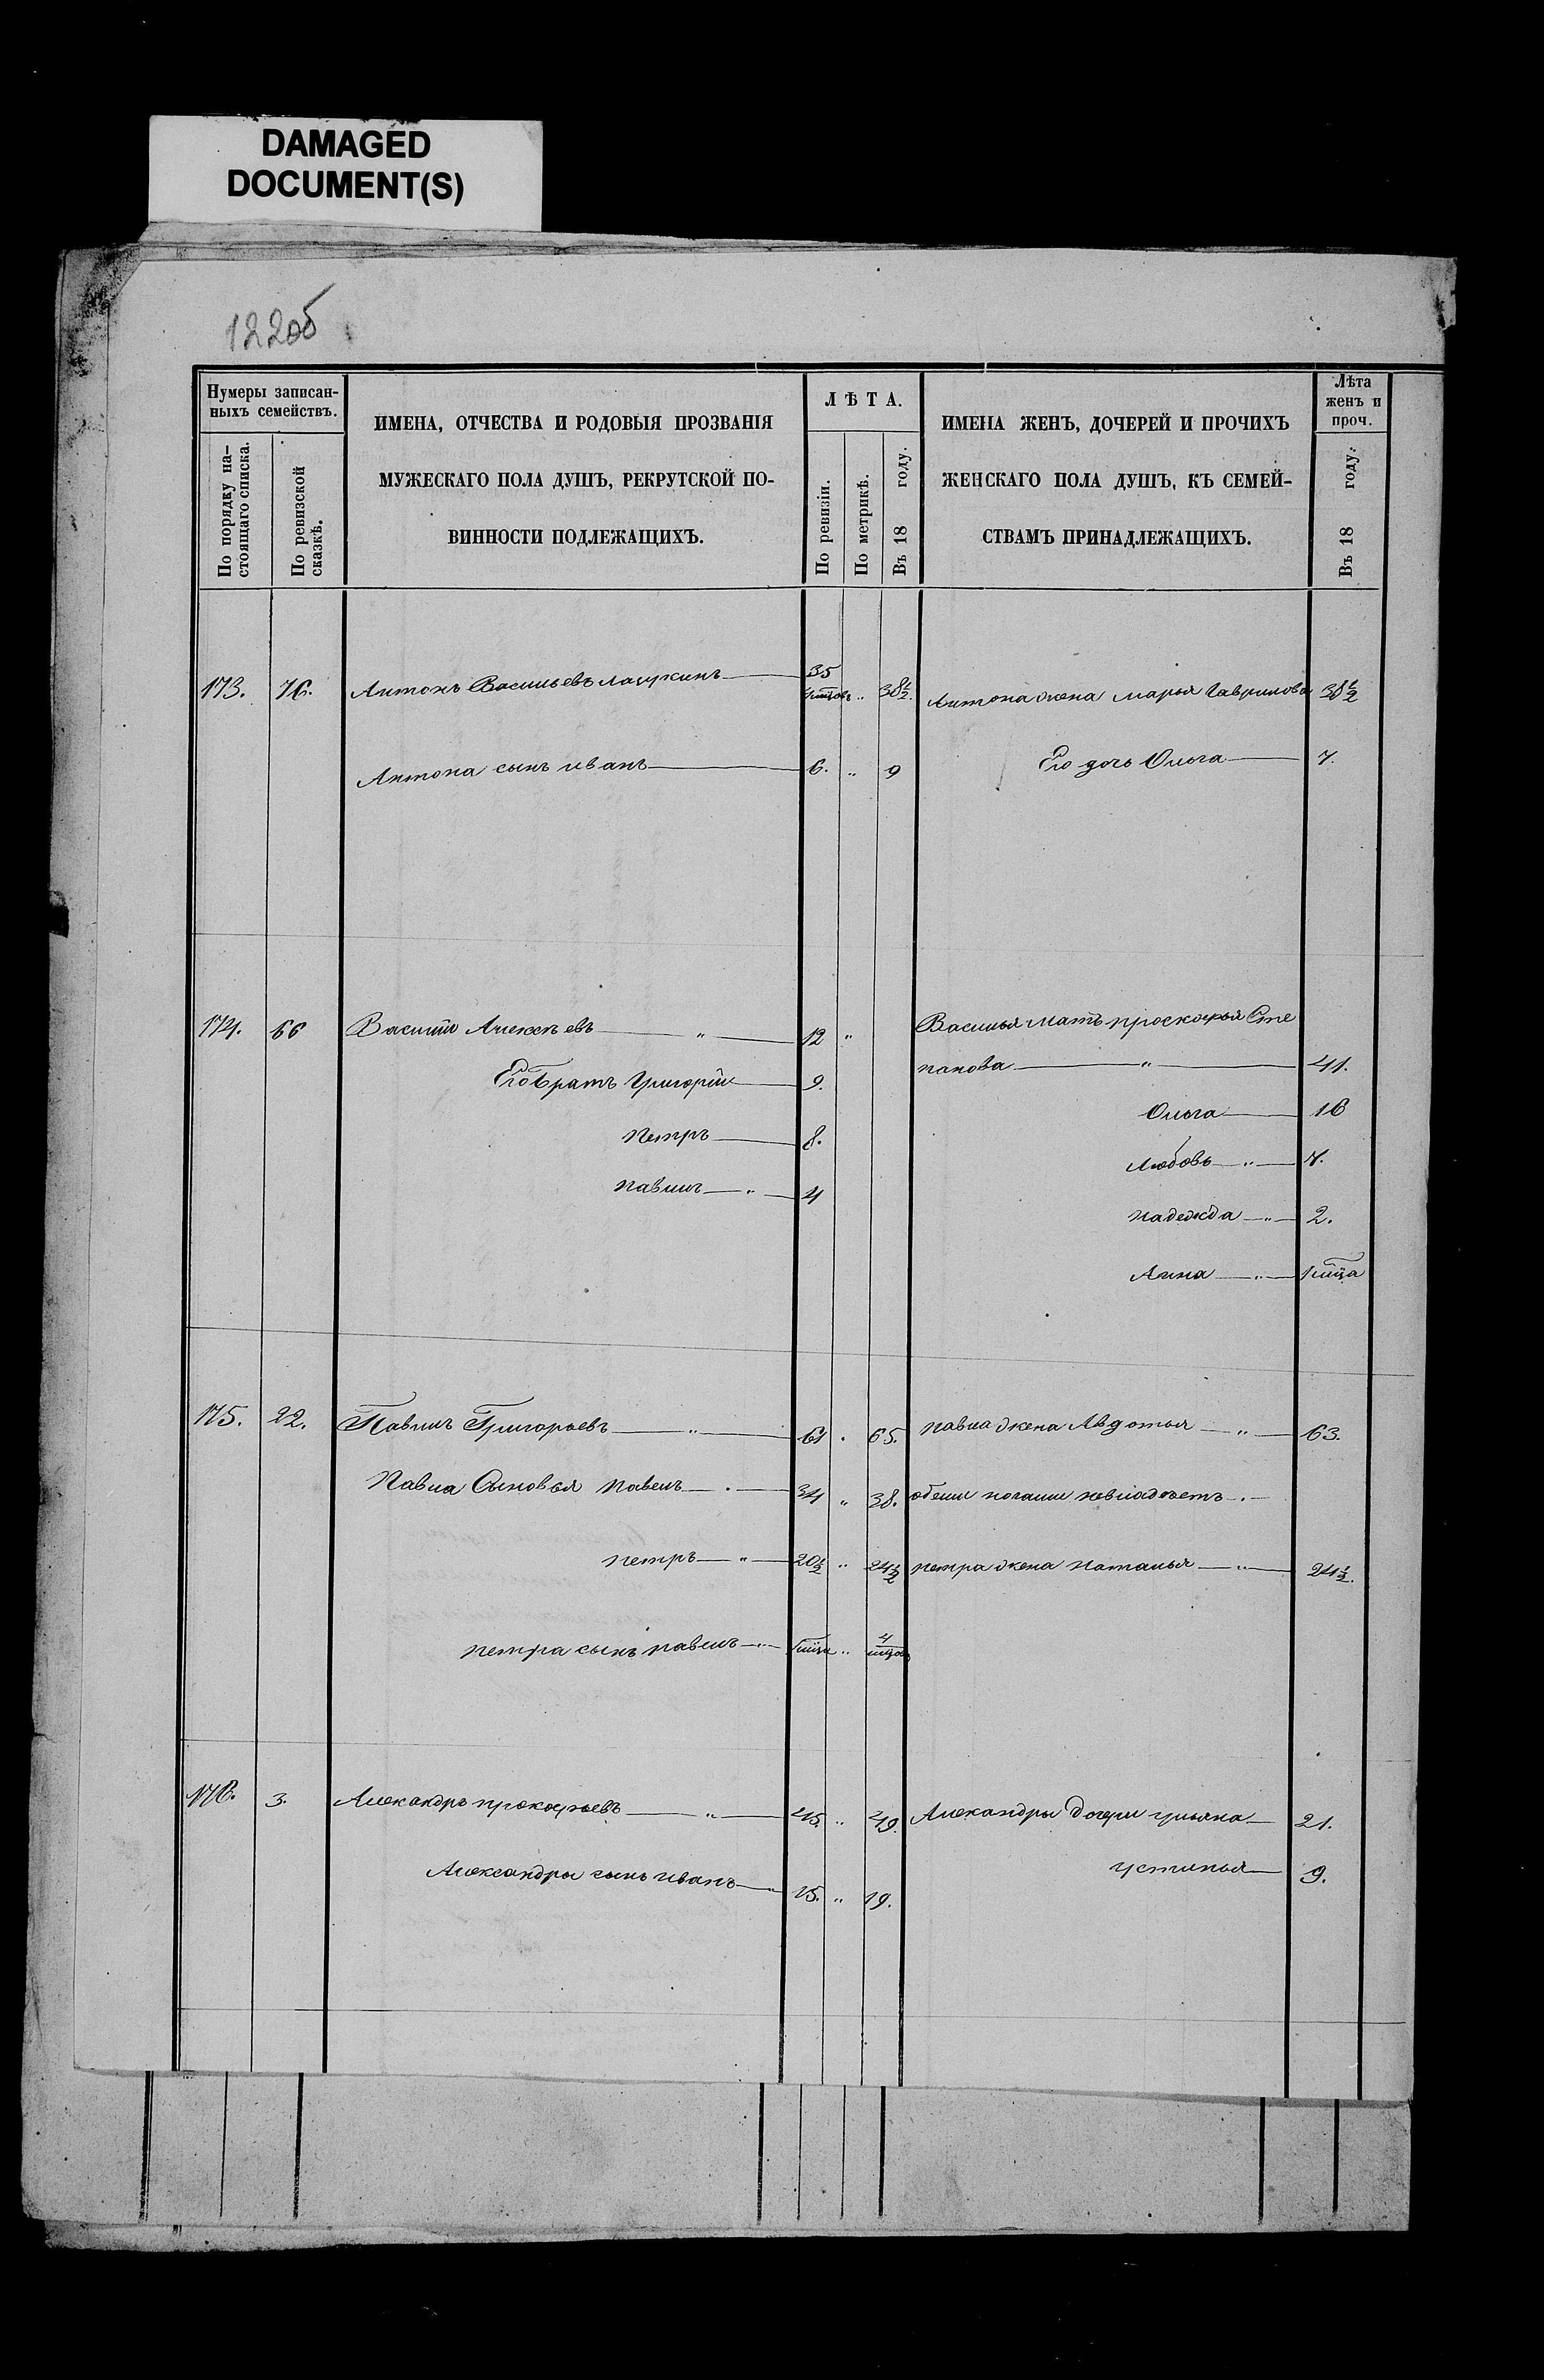 DAMAGED
DOCUMENT(S)
122об
Нумеры записан-
ныхъ семействъ.
По порядку на-
стоящаго списка.
По ревизской
сказкѣ.
ИМЕНА, ОТЧЕСТВА И РОДОВЫЯ ПРОЗВАНІЯ
МУЖЕСКАГО ПОЛА ДУШЪ, РЕКРУТСКОЙ ПО-
ВИННОСТИ ПОДЛЕЖАЩИХЪ.
ЛѢТА.
По ревизіи.
По метрикѣ.
Въ 18 году.
ИМЕНА ЖЕНЪ, ДОЧЕРЕЙ И ПРОЧИХЪ
ЖЕНСКАГО ПОЛА ДУШЪ, КЪ СЕМЕЙ-
СТВАМЪ ПРИНАДЛЕЖАЩИХЪ.
Лѣта
женъ и
проч.
Въ 18 году.
173. 76. Антонъ Васильевъ 35 " 38½. Антона жена марья Гаврилова 38½
Антона сынъ иванъ 6. " 9 Его дочь Ольга 7.
174. 66 Василій Алексѣевъ " 12 " Василья мать проскофья Сте
панова " 41.
Его братъ Григорій 9.
Ольга 16
петръ 8.
любовь " 7.
павилъ " 4
надежда " 2.
Анна "
175. 22. Павилъ Григорьевъ " 61 . 65. павла жена Авдотья " 63.
Павла Сыновья павелъ . 34 " 38.
петръ " 20½ " 24½ петра жена наталья " 24½.
петра сынъ павилъ " " 4
176. 3. Александръ прокофьевъ " 45. " 49. Александры дочери ульяна 21.
Александры сынъ иванъ " 15. " 19. устинья 9.